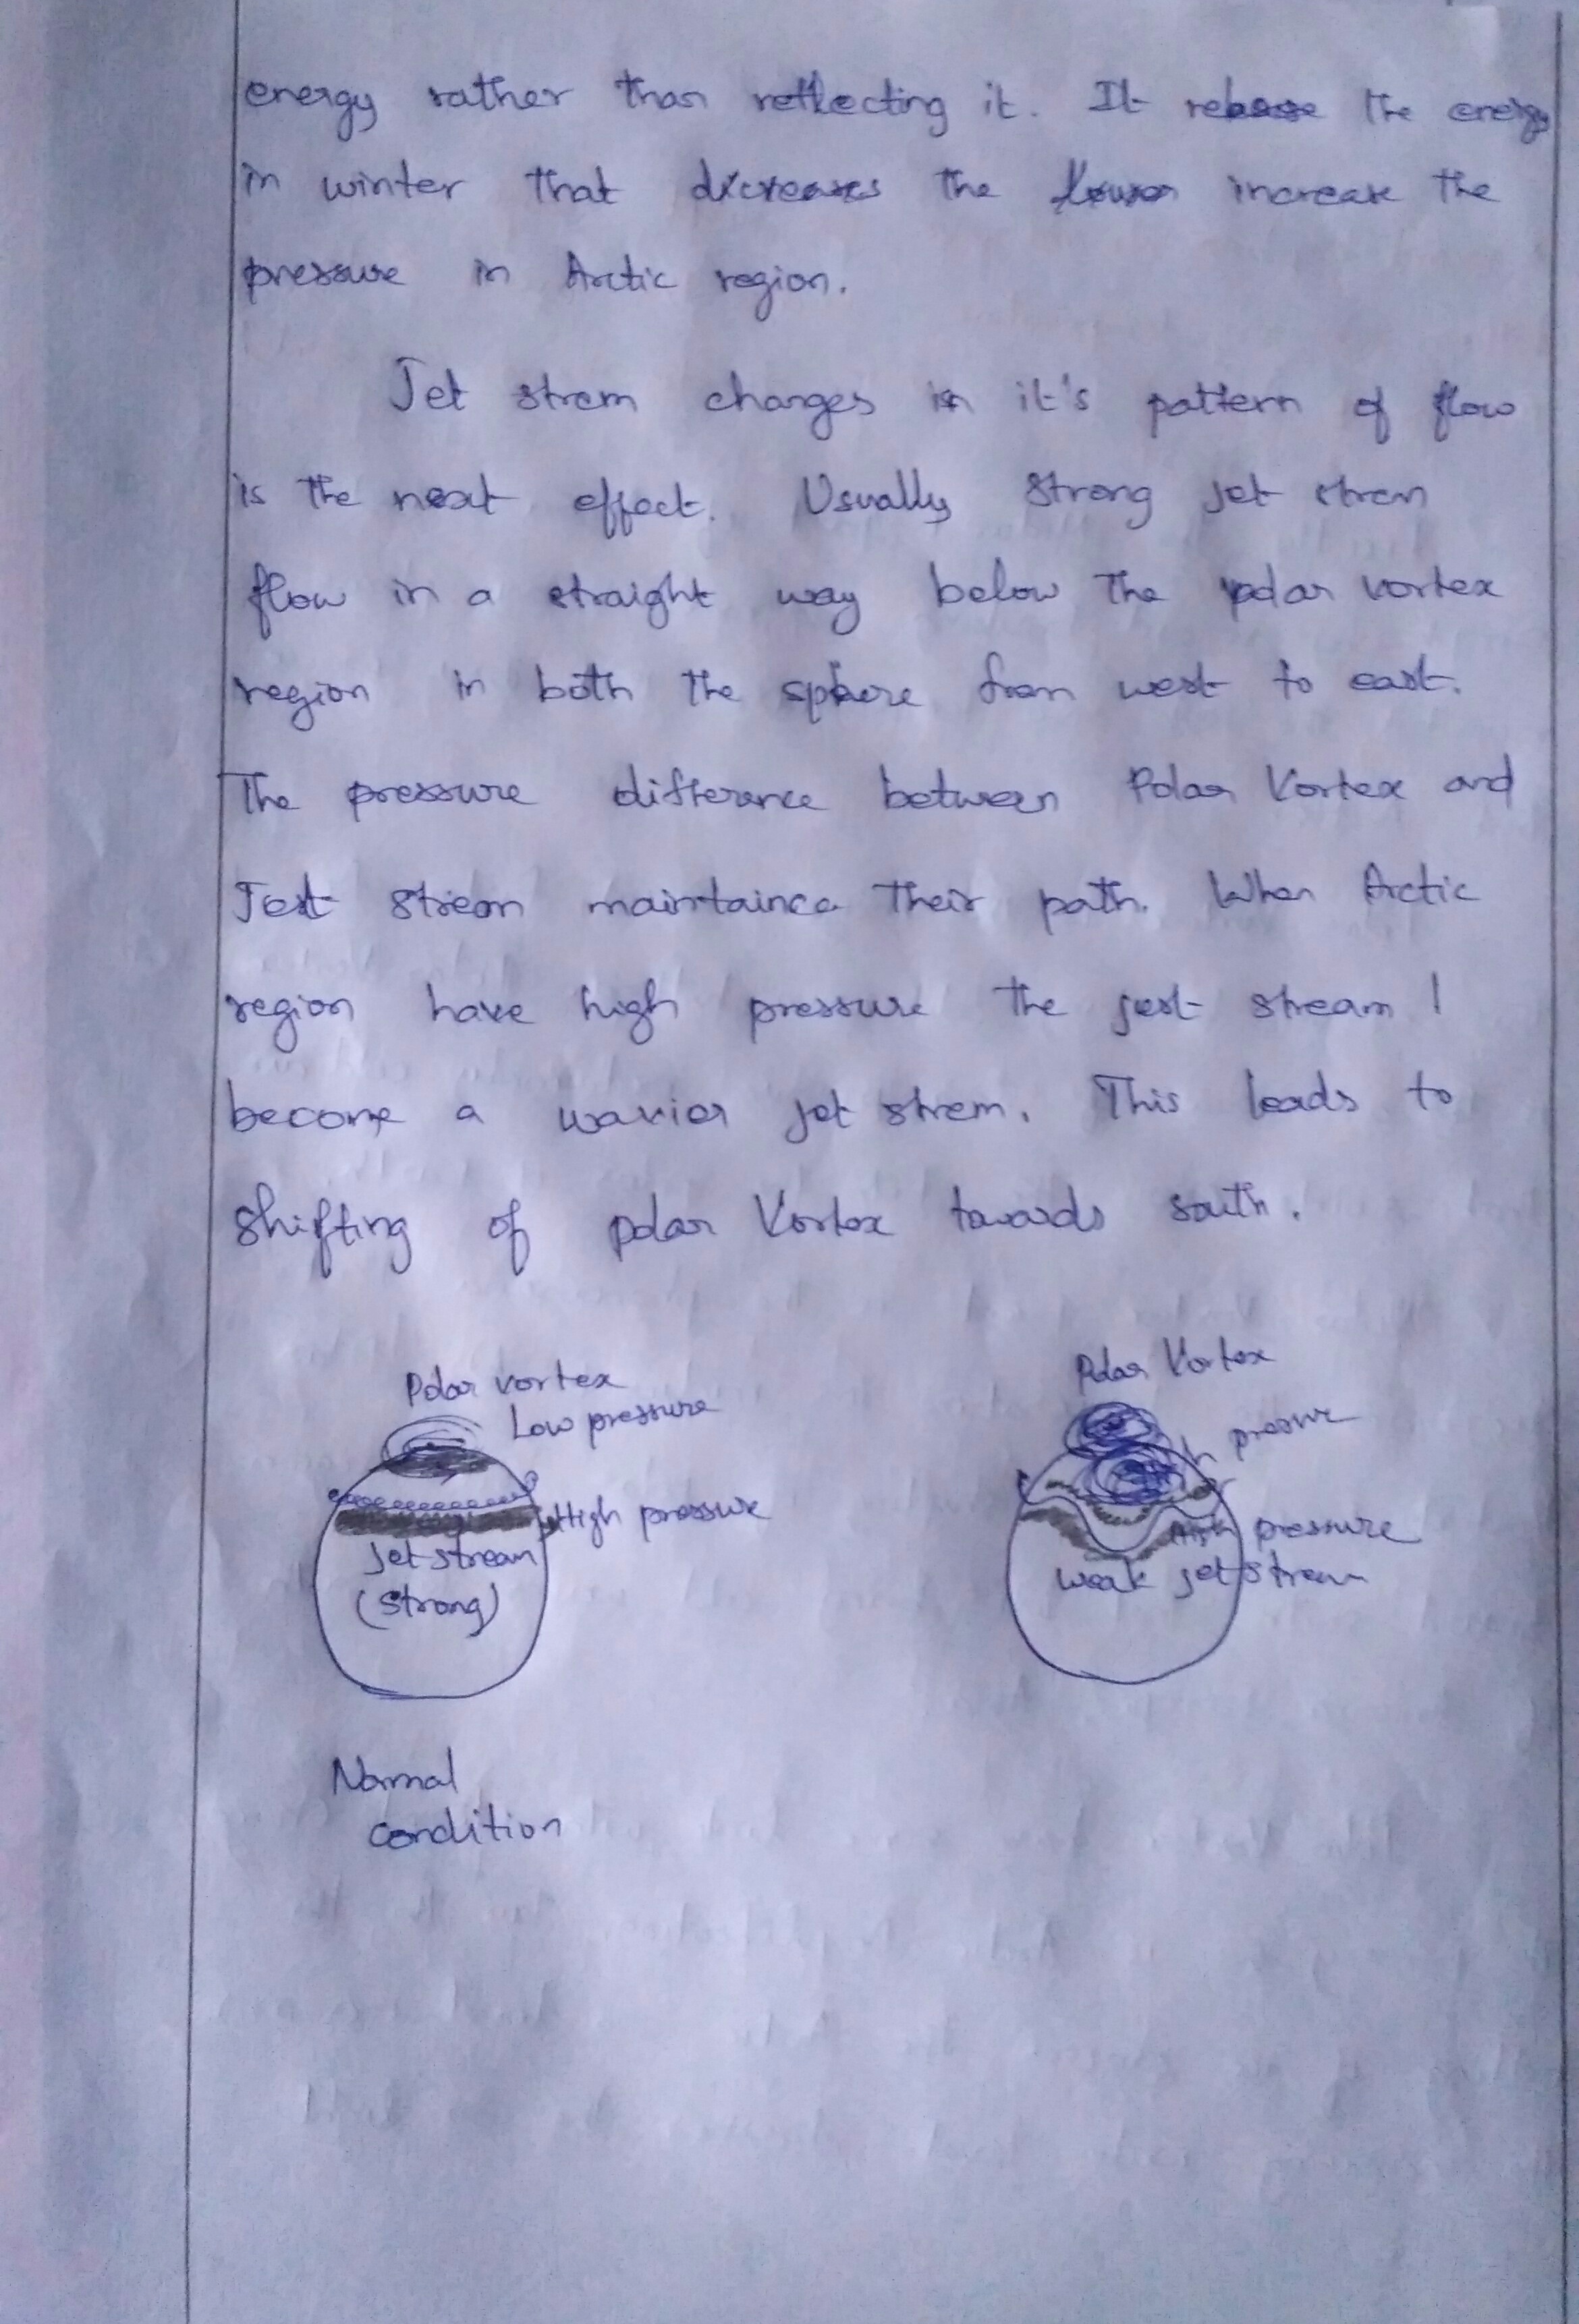 energy rather than reflecting it. It release the energy
in winter that increase the
pressure in Arctic region.
Jet strem changes in it's pattern of flow
is the next effect. Usually strong jet strem
flow in a straight way below the polar vortex
region in both the sphere from west to east.
The pressure difference between Polar Vortex and
Jest stream maintaince their path. When Arctic
region have high pressure the jest stream
become a wavier jet strem. This leads to
shifting of polar Vortex towards south.
Polar vortex
Low pressure
High pressure
Jet stream
(strong)
Normal
condition
Polar Vortex
pressure
High pressure
weak jet stream